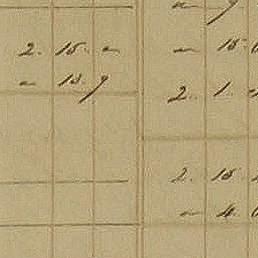 2. 15. -
- 13. 9
- 9
- 15.
2. 1.
2. 15
- 4.